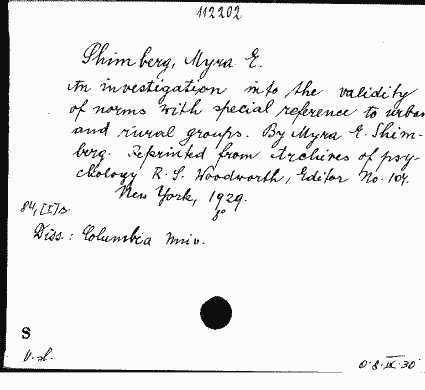 112202
Shimberg, Myra E.
An investigation into the validity
of norms with special reference to urban
and rural groups. By Myra E. Shim-
berg. Reprinted from Archives of psy-
chology R. S. Woodworth, Editor No. 104.
New York, 1929.
8°
84, [I] s.
Diss.: Columbia Univ.
S
0·8·IX·30